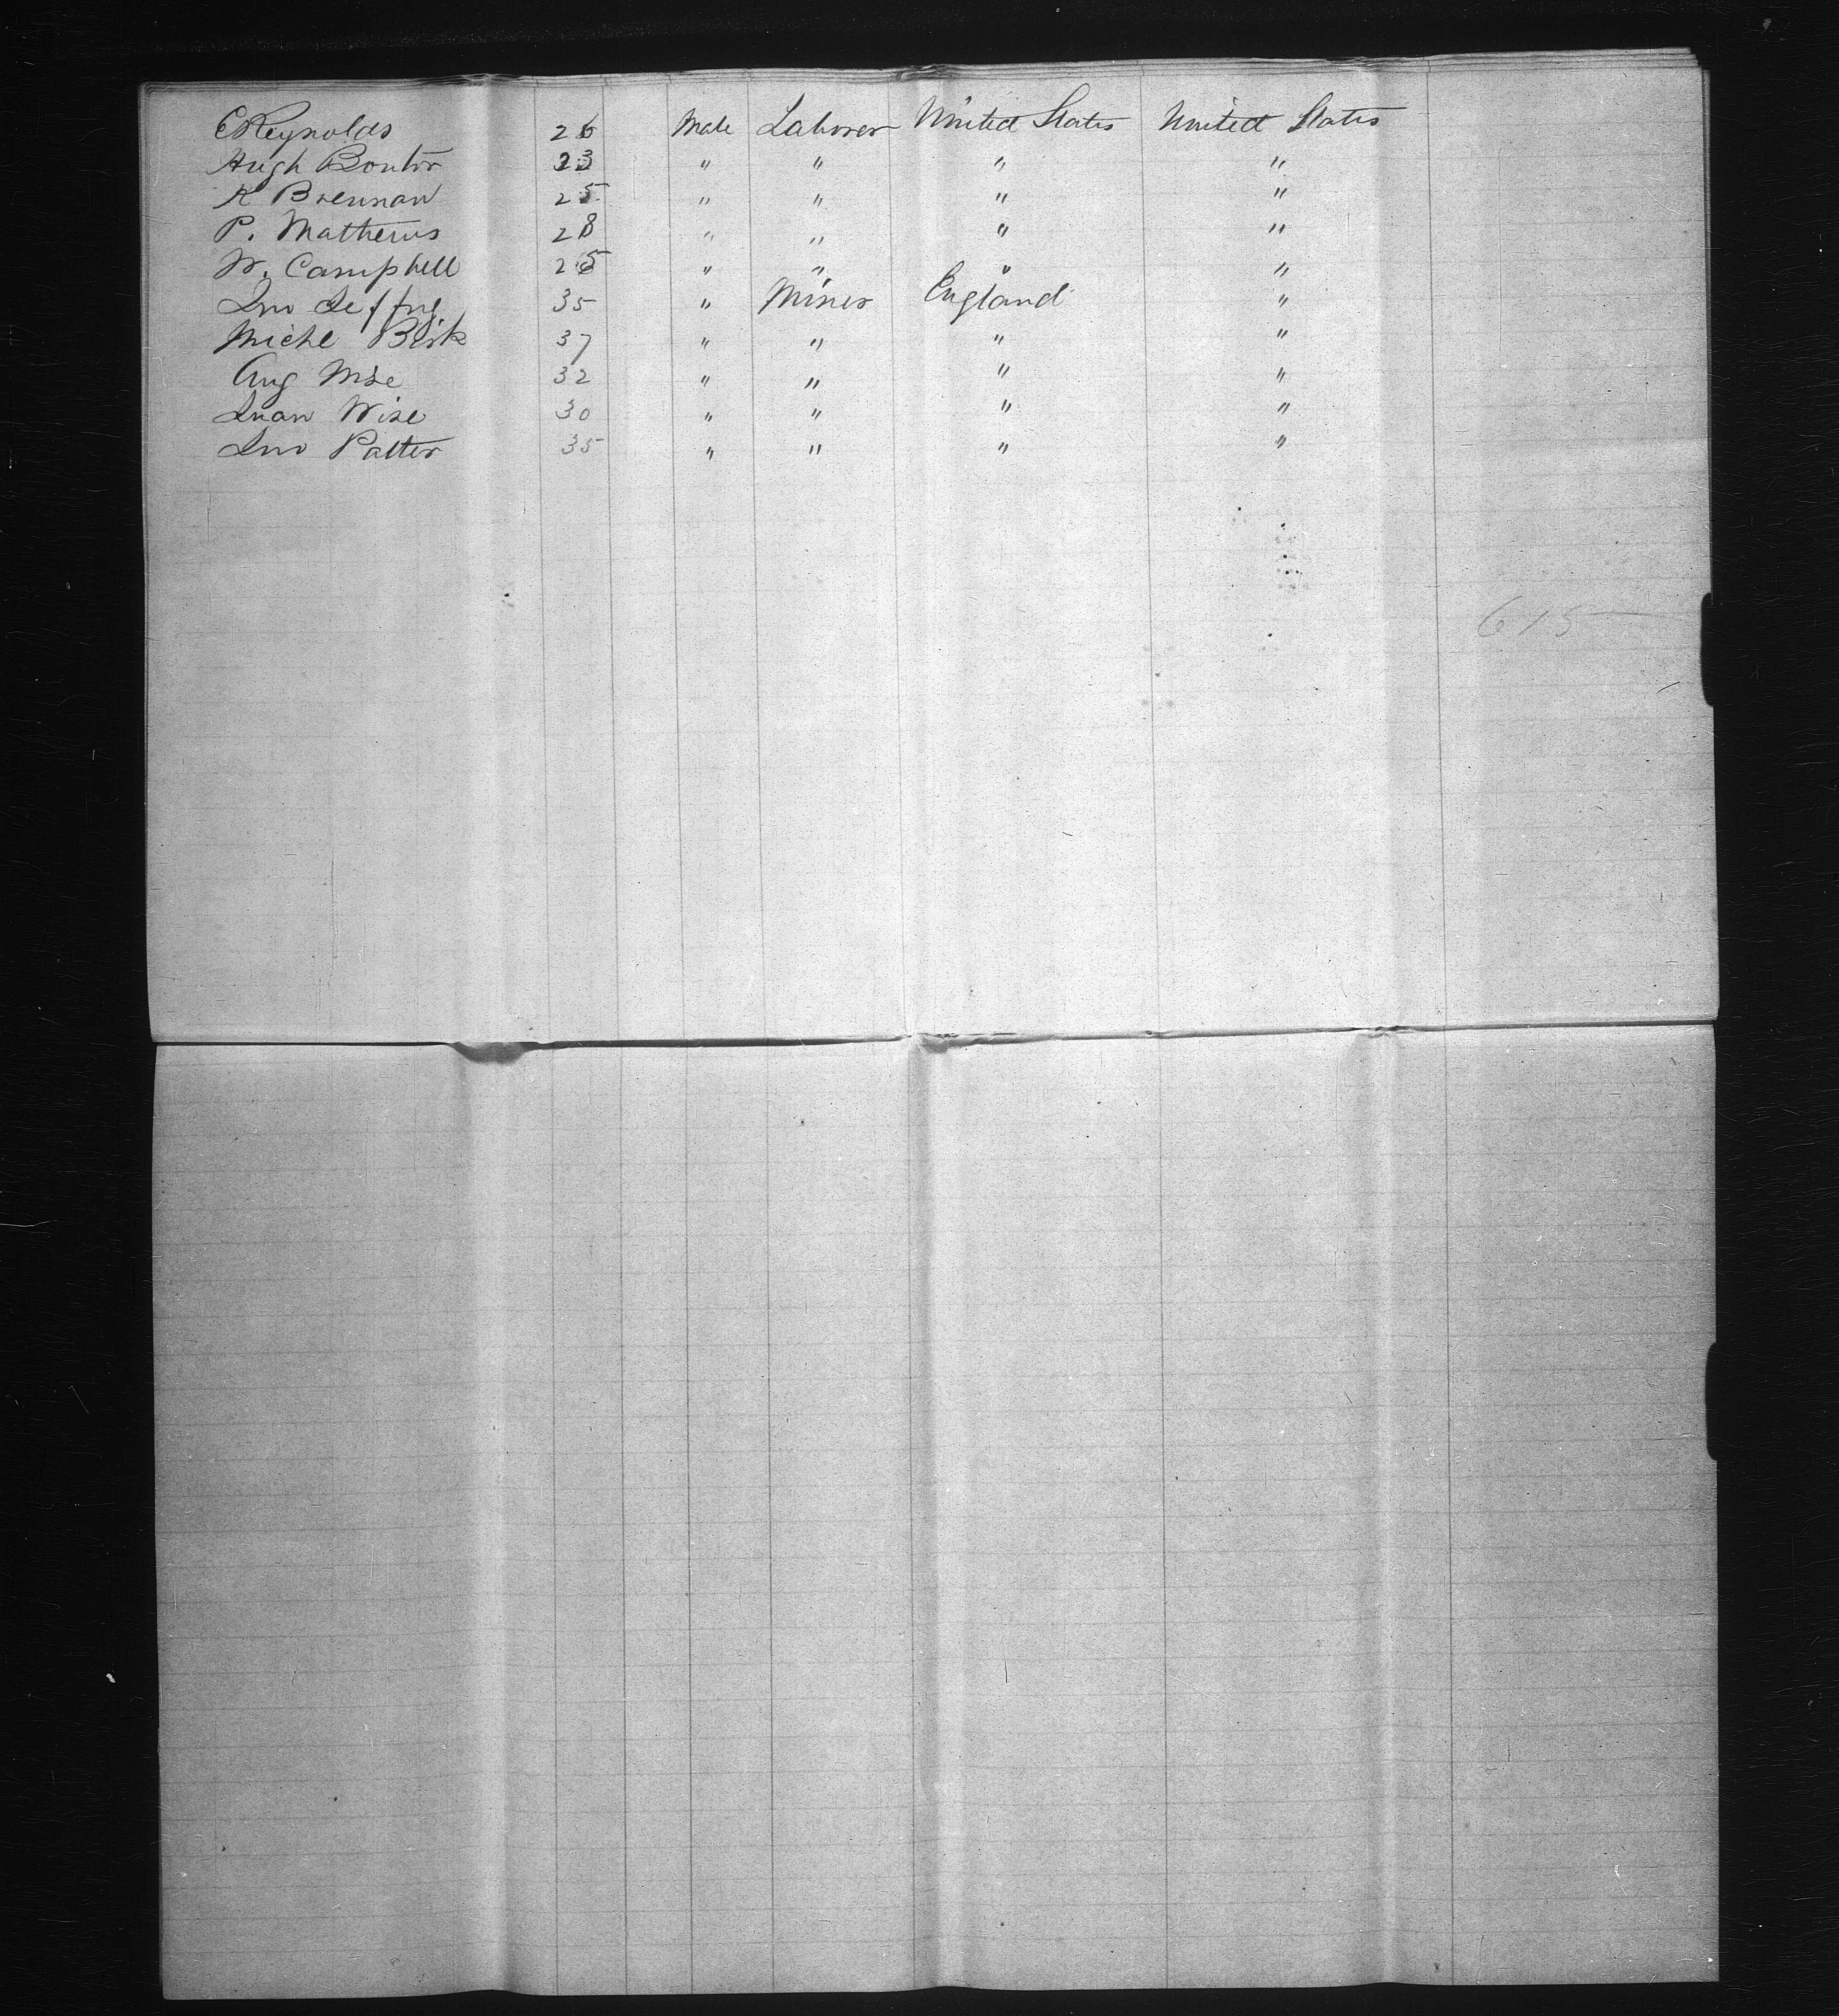 E Reynolds 26 Male Laborer United States United States
Hugh Bontor 23 " " " "
K Brennan 25 " " " "
P. Mathews 28 " " " "
W. Campbell 25 " " " "
Jno Jeffrey 35 " Miner England "
Michl Birk 37 " " " "
Aug Wise 32 " " " "
Juan Wise 30 " " " "
Jno Patter 35 " " " "
615